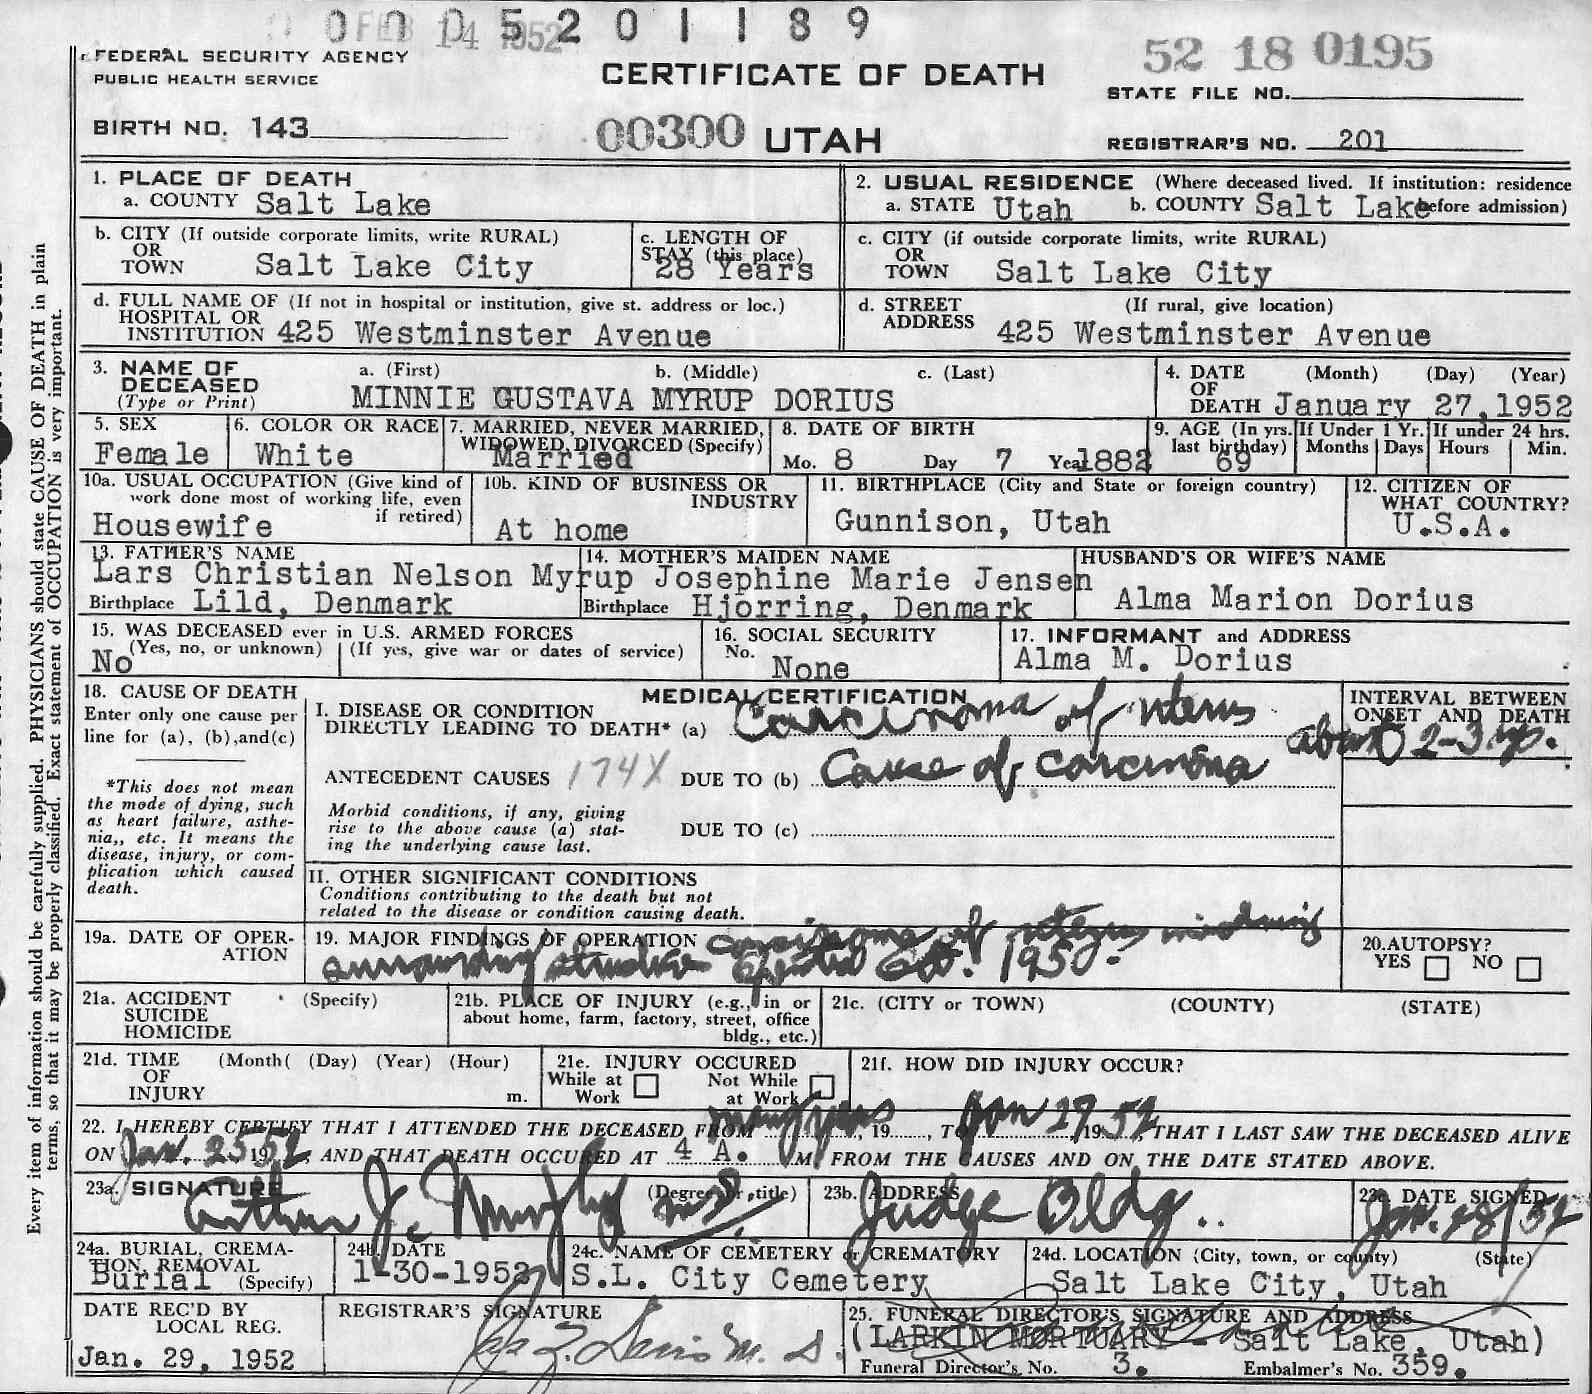 0005201189
FEB 14 1952
FEDERAL SECURITY AGENCY
PUBLIC HEALTH SERVICE
CERTIFICATE OF DEATH
52 18 0195
STATE FILE NO.
BIRTH NO. 143
00300 UTAH
REGISTRAR'S NO. 201
1. PLACE OF DEATH
a. COUNTY Salt Lake
2. USUAL RESIDENCE (Where deceased lived. If institution: residence before admission)
a. STATE Utah b. COUNTY Salt Lake
b. CITY (If outside corporate limits, write RURAL)
OR
TOWN Salt Lake City
c. LENGTH OF
STAY (this place)
28 Years
c. CITY (if outside corporate limits, write RURAL)
OR
TOWN Salt Lake City
d. FULL NAME OF (If not in hospital or institution, give st. address or loc.)
HOSPITAL OR
INSTITUTION 425 Westminster Avenue
d. STREET (If rural, give location)
ADDRESS 425 Westminster Avenue
3. NAME OF
DECEASED
(Type or Print)
a. (First) b. (Middle) c. (Last)
MINNIE GUSTAVA MYRUP DORIUS
4. DATE (Month) (Day) (Year)
OF
DEATH January 27, 1952
5. SEX
Female
6. COLOR OR RACE
White
7. MARRIED, NEVER MARRIED,
WIDOWED, DIVORCED (Specify)
Married
8. DATE OF BIRTH
Mo. 8 Day 7 Year 1882
9. AGE (In yrs.
last birthday)
69
If Under 1 Yr.
Months Days
If under 24 hrs.
Hours Min.
10a. USUAL OCCUPATION (Give kind of
work done most of working life, even
if retired)
Housewife
10b. KIND OF BUSINESS OR
INDUSTRY
At home
11. BIRTHPLACE (City and State or foreign country)
Gunnison, Utah
12. CITIZEN OF
WHAT COUNTRY?
U.S.A.
13. FATHER'S NAME
Lars Christian Nelson Myrup
Birthplace Lild, Denmark
14. MOTHER'S MAIDEN NAME
Josephine Marie Jensen
Birthplace Hjorring, Denmark
HUSBAND'S OR WIFE'S NAME
Alma Marion Dorius
15. WAS DECEASED ever in U.S. ARMED FORCES
(Yes, no, or unknown) (If yes, give war or dates of service)
No
16. SOCIAL SECURITY
No.
None
17. INFORMANT and ADDRESS
Alma M. Dorius
18. CAUSE OF DEATH
Enter only one cause per
line for (a), (b),and(c)
*This does not mean
the mode of dying, such
as heart failure, asthe-
nia,, etc. It means the
disease, injury, or com-
plication which caused
death.
MEDICAL CERTIFICATION
I. DISEASE OR CONDITION
DIRECTLY LEADING TO DEATH* (a) Carcinoma of uterus
ANTECEDENT CAUSES 174X DUE TO (b) Cause of carcinoma
Morbid conditions, if any, giving
rise to the above cause (a) stat-
ing the underlying cause last.
DUE TO (c)
II. OTHER SIGNIFICANT CONDITIONS
Conditions contributing to the death but not
related to the disease or condition causing death.
INTERVAL BETWEEN
ONSET AND DEATH
about 2-3 yrs.
19a. DATE OF OPER-
ATION
19. MAJOR FINDINGS OF OPERATION carcinoma of uterus involving
surrounding Oct. 1950.
20.AUTOPSY?
YES NO
21a. ACCIDENT (Specify)
SUICIDE
HOMICIDE
21b. PLACE OF INJURY (e.g., in or
about home, farm, factory, street, office
bldg., etc.)
21c. (CITY or TOWN) (COUNTY) (STATE)
21d. TIME (Month( (Day) (Year) (Hour)
OF
INJURY m.
21e. INJURY OCCURED
While at Work Not While at Work
21f. HOW DID INJURY OCCUR?
22. I HEREBY CERTIFY THAT I ATTENDED THE DECEASED FROM many yrs, 19, TO Jan 27 1952, THAT I LAST SAW THE DECEASED ALIVE
ON Jan. 25 1952, AND THAT DEATH OCCURED AT 4 A. M, FROM THE CAUSES AND ON THE DATE STATED ABOVE.
23a. SIGNATURE (Degree or title)
Arthur J. Murphy MD
23b. ADDRESS
Judge Bldg.
23c. DATE SIGNED
Jan. 28/52
24a. BURIAL, CREMA-
TION, REMOVAL
(Specify)
Burial
24b. DATE
1-30-1952
24c. NAME OF CEMETERY or CREMATORY
S.L. City Cemetery
24d. LOCATION (City, town, or county) (State)
Salt Lake City, Utah
DATE REC'D BY
LOCAL REG.
Jan. 29, 1952
REGISTRAR'S SIGNATURE
25. FUNERAL DIRECTOR'S SIGNATURE AND ADDRESS
(LARKIN MORTUARY - Salt Lake, Utah)
Funeral Director's No. 3. Embalmer's No. 359.
Every item of information should be carefully supplied. PHYSICIANS should state CAUSE OF DEATH in plain
terms, so that it may be properly classified. Exact statement of OCCUPATION is very important.